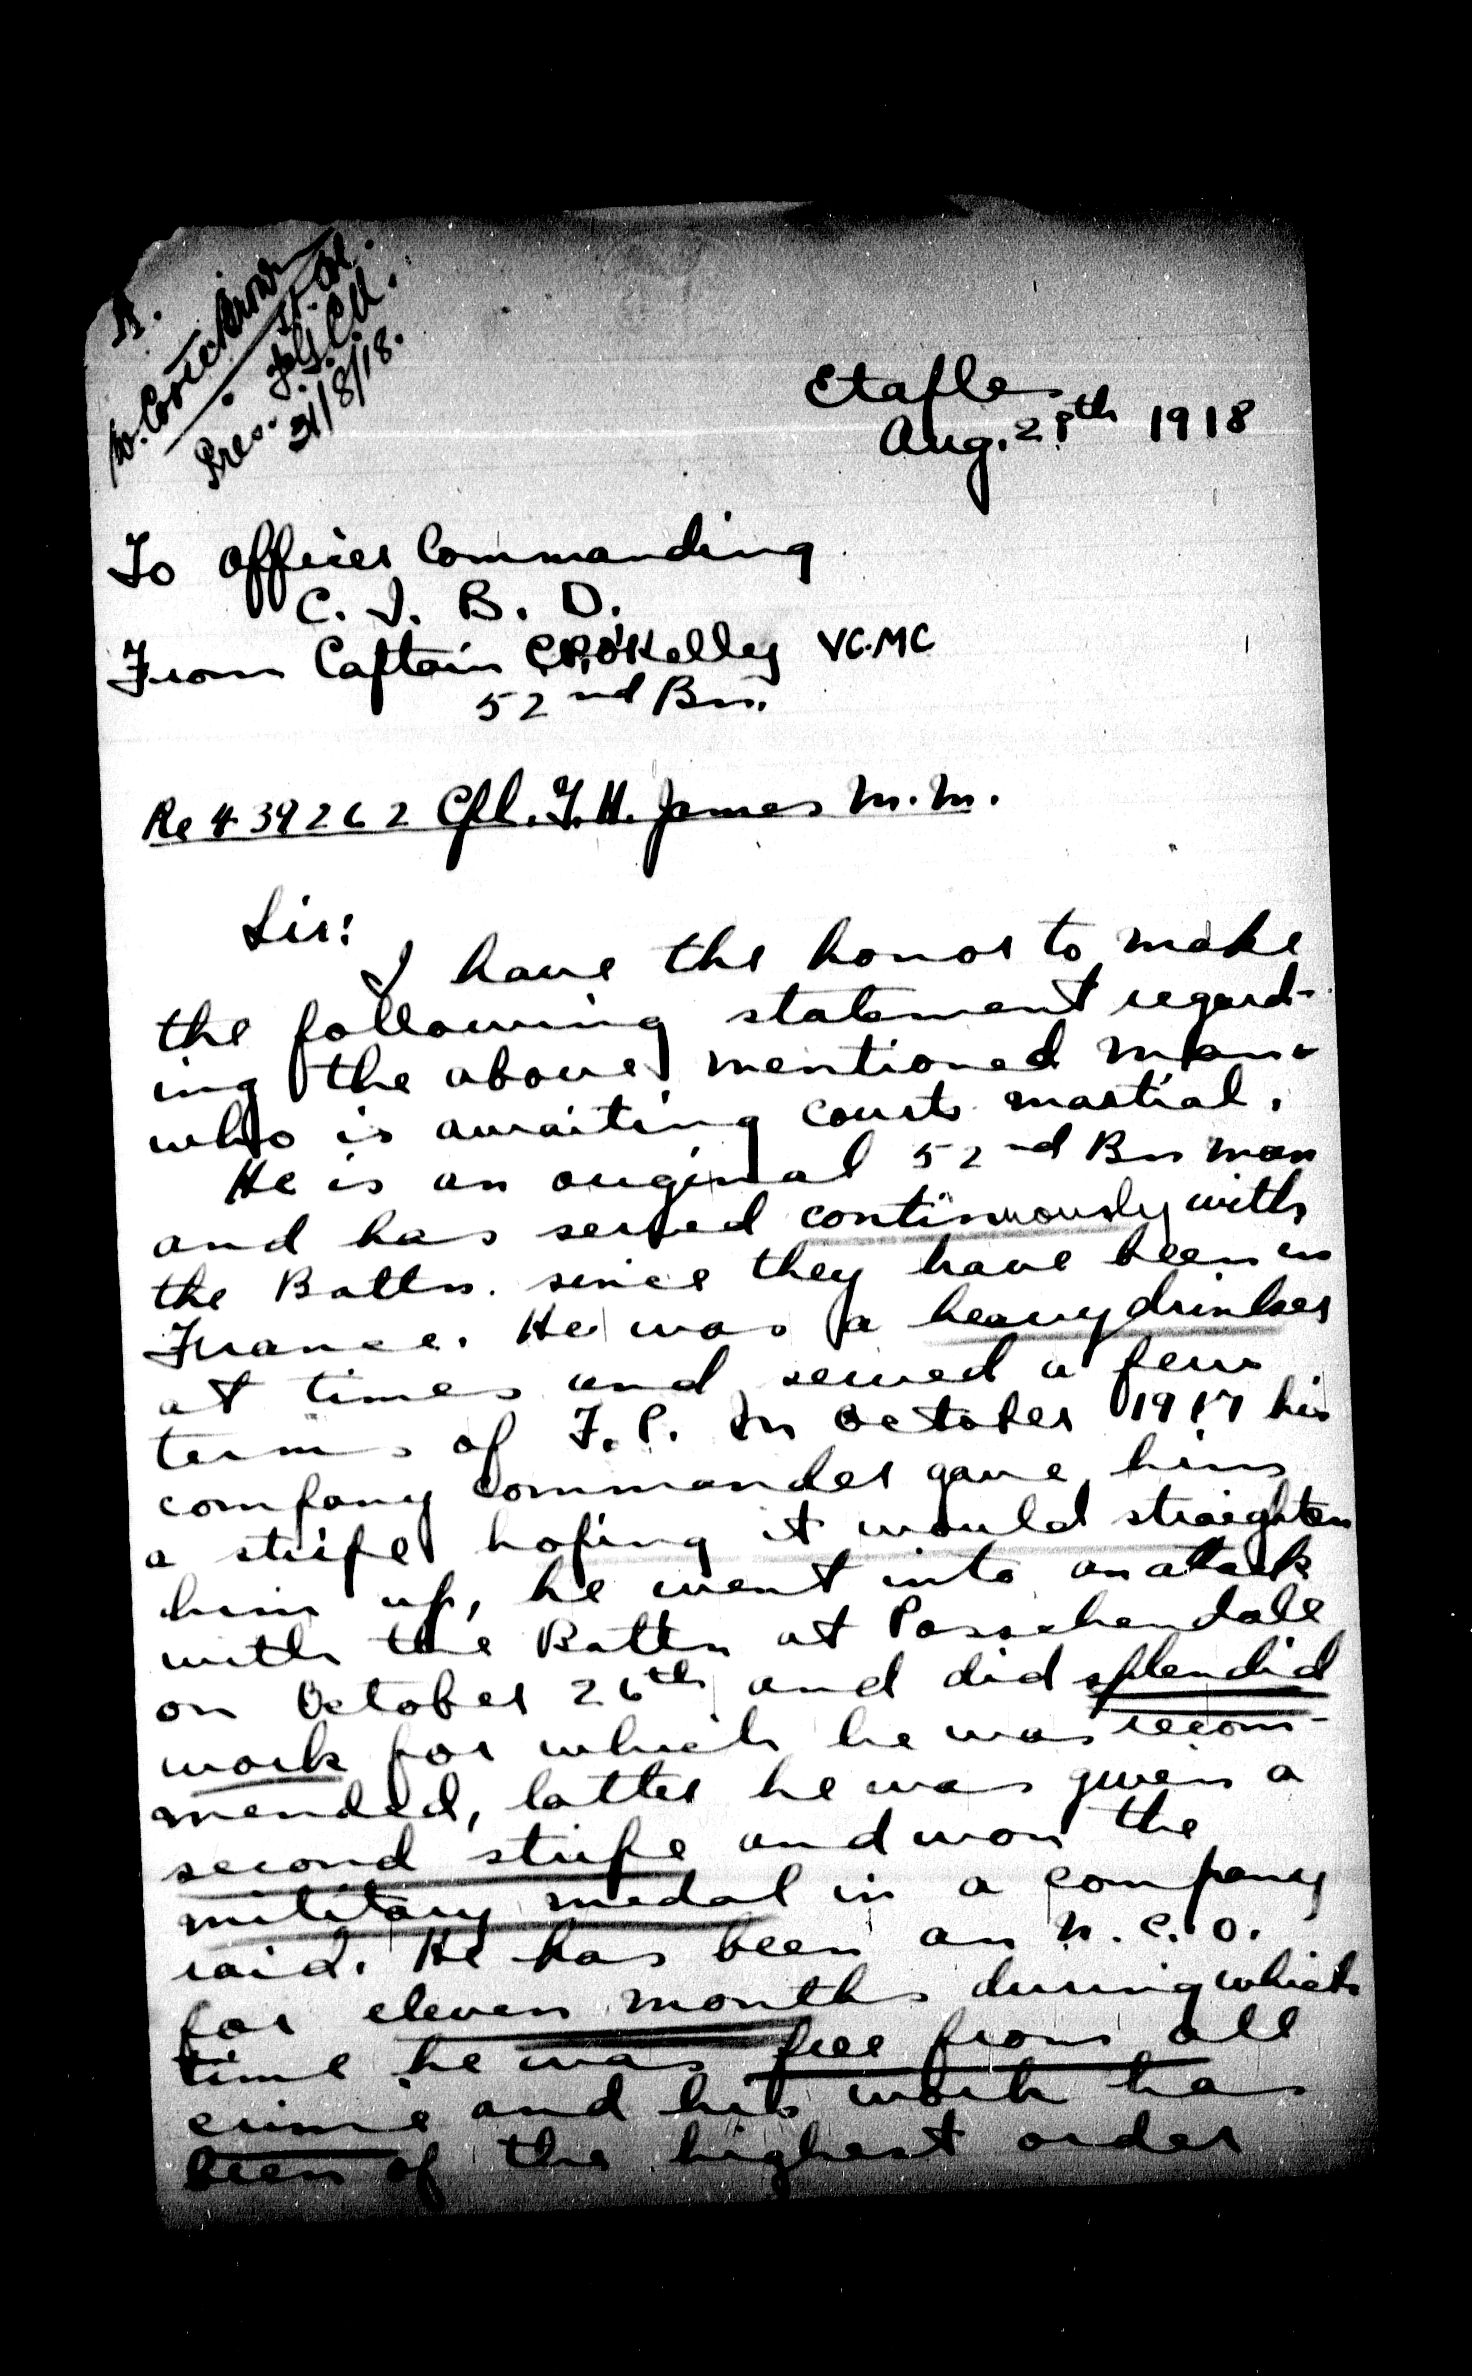 A.
W. Coote Brown
Lt. Col.
Pres. F.G.C.M.
31/8/18.
Etaples
Aug. 28th 1918
To Officer Commanding
C. I. B. D.
From Captain C.P. O'Kelley VC. MC
52nd Bn.
Re 439262 Cpl. F. H. James M.M.
Sir:
I have the honor to make
the following statement regard-
ing the above mentioned man
who is awaiting courts martial.
He is an original 52nd Bn man
and has served continuously with
the Battn. since they have been in
France. He was a heavy drinker
at times and served a few
terms of F.P. In October 1917 his
company commander gave him
a stripe hoping it would straighten
him up, he went into an attack
with the Battn at Passchendale
on October 26th and did splendid
work for which he was recom-
mended, latter he was given a
second stripe and won the
military medal in a company
raid. He has been an N.C.O.
for eleven months during which
time he was free from all
crime and his work has
been of the highest order